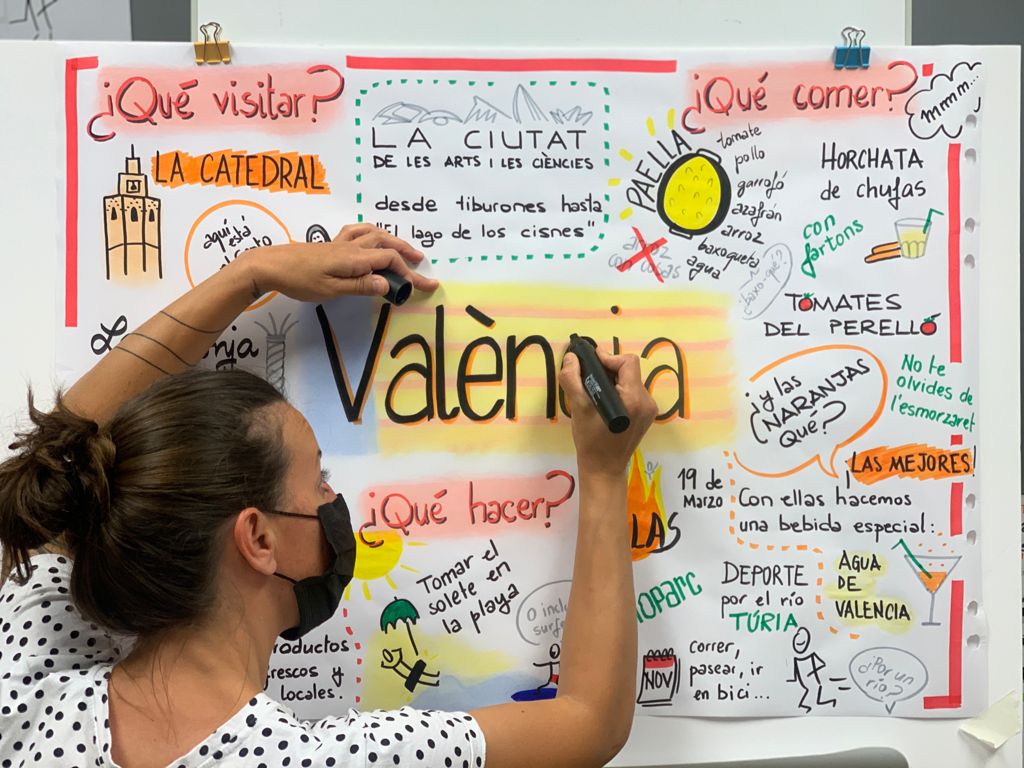 ¿Qué visitar?
LA CATEDRAL
aquí
está
LA CIUTAT
DE LES ARTS I LES CIÈNCIES
desde tiburones hasta
"El lago de los cisnes"
¿Qué comer?
mmm...
PAELLA
tomate
pollo
garrofó
azafrán
arroz
baxoqueta
agua
arroz
con cosas
¿baxo-qué?
HORCHATA
de chufas
con
fartons
TOMATES
DEL PERELLÓ
València
¿y las
NARANJAS
Qué?
No te
olvides de
l'esmorzaret
¡LAS MEJORES!
Con ellas hacemos
una bebida especial:
AGUA
DE
VALENCIA
¿Qué hacer?
Tomar el
solete en
la playa
19 de
Marzo
LAS
DEPORTE
por el río
TÚRIA
NOV
correr,
pasear, ir
en bici...
¿Por un
río?
locales.